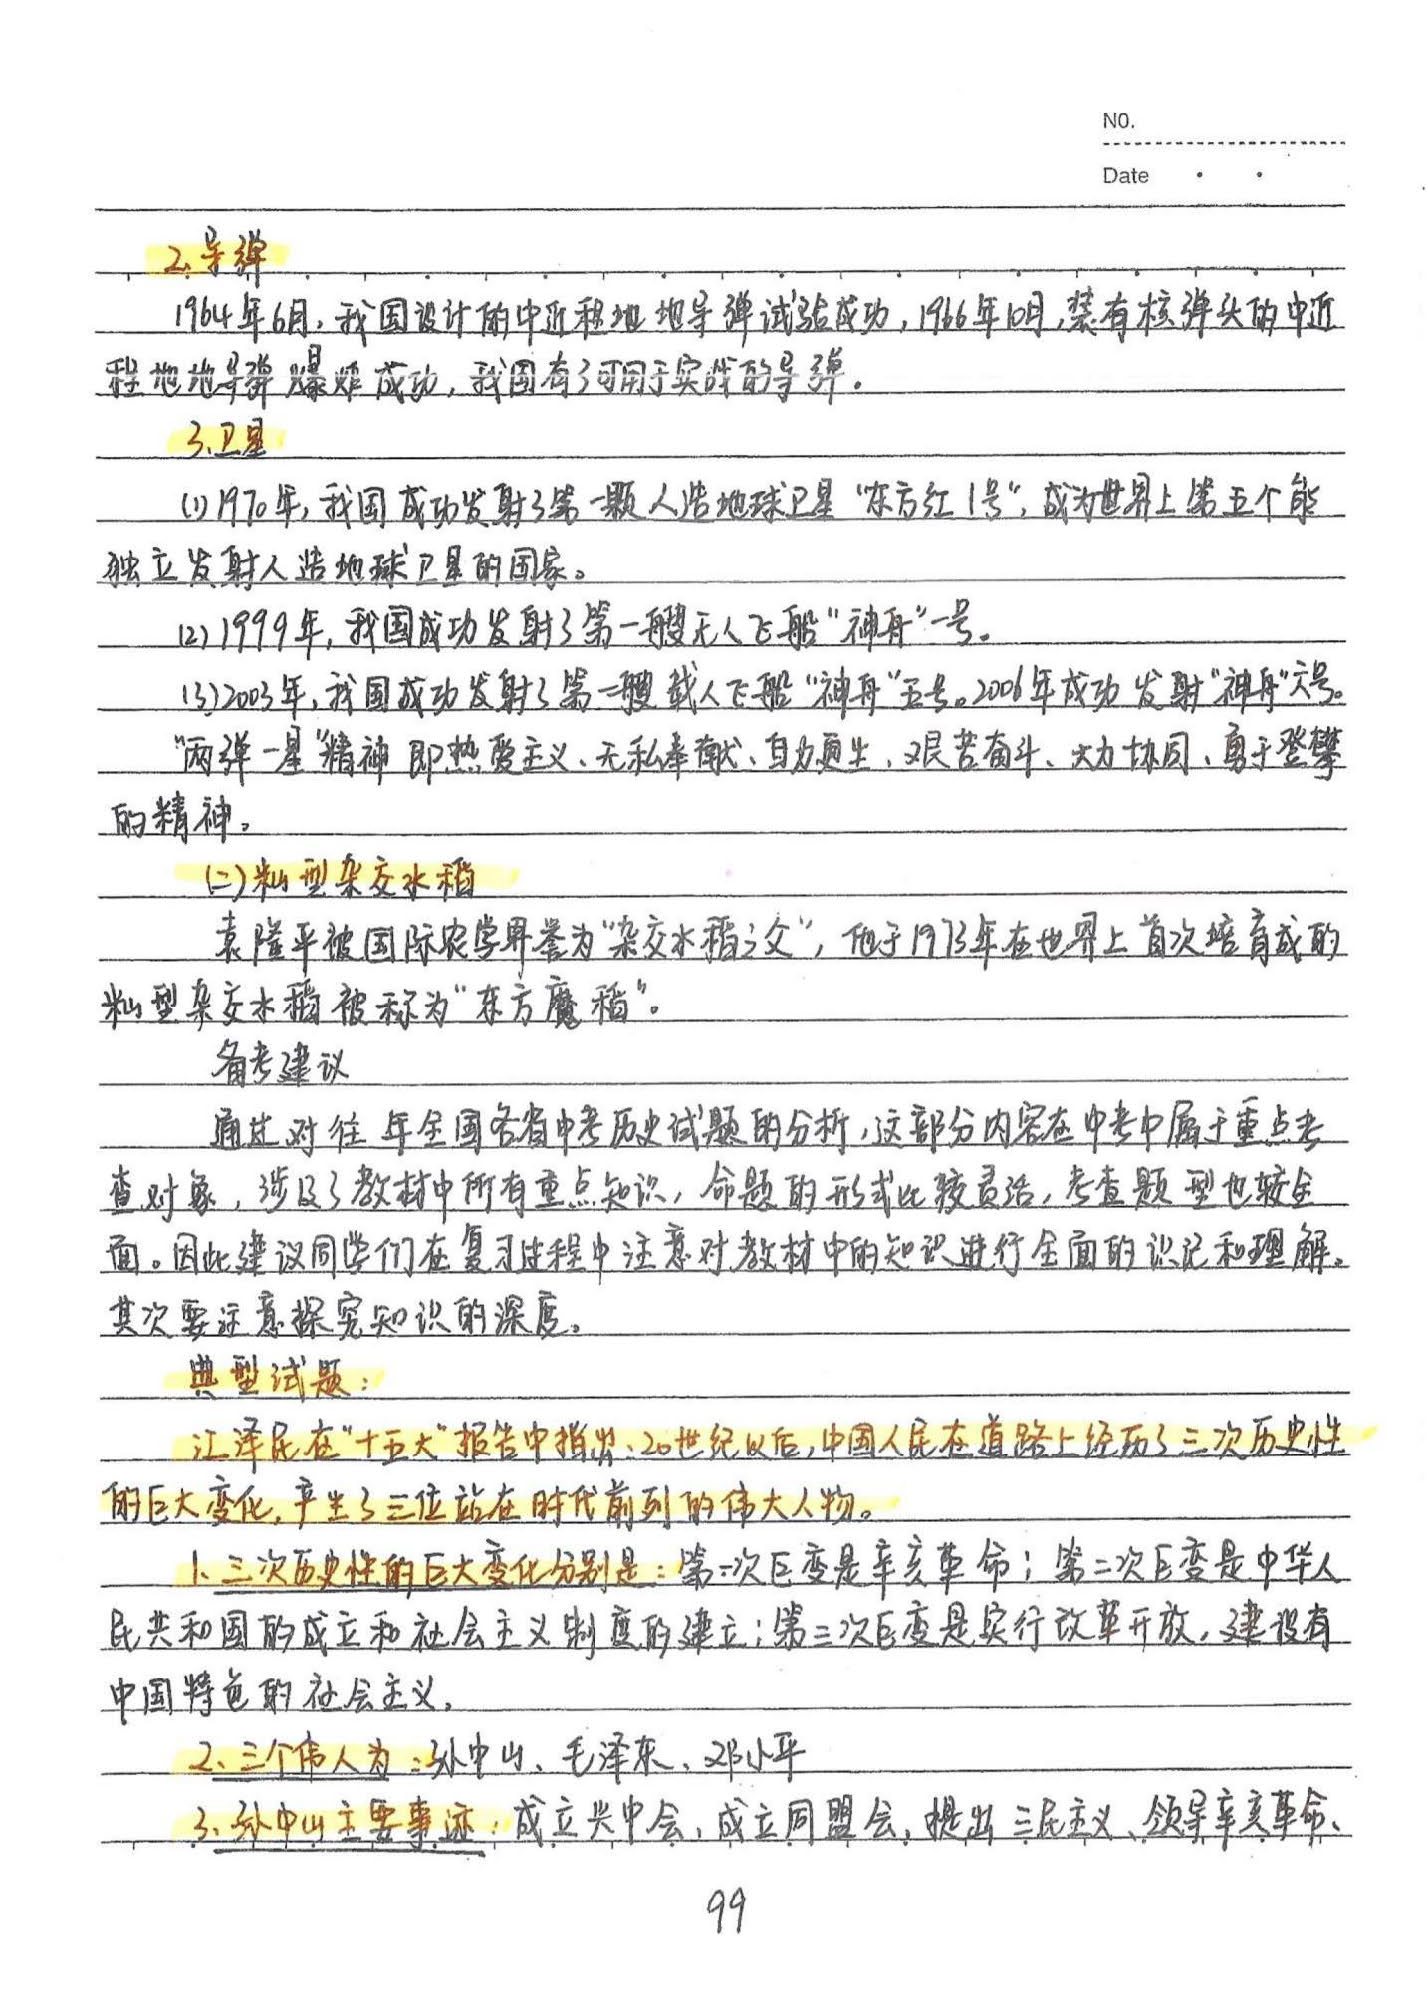 NO.
Date
2、导弹
1964年6月,我国设计的中近程地地导弹试验成功,1966年10月,装有核弹头的中近
程地地导弹爆炸成功,我国有了可用于实战的导弹。
3、卫星
(1)1970年,我国成功发射了第一颗人造地球卫星“东方红1号”,成为世界上第五个能
独立发射人造地球卫星的国家。
(2)1999年,我国成功发射了第一艘无人飞船“神舟”一号。
(3)2003年,我国成功发射了第一艘载人飞船“神舟”五号。2006年成功发射“神舟”六号。
“两弹一星”精神即热爱主义、无私奉献、自力更生、艰苦奋斗、大力协同、勇于登攀
的精神。
(二)籼型杂交水稻
袁隆平被国际农学界誉为“杂交水稻之父”,他于1973年在世界上首次培育成的
籼型杂交水稻被称为“东方魔稻”。
备考建议
通过对往年全国各省中考历史试题的分析,这部分内容在中考中属于重点考
查对象,涉及了教材中所有重点知识,命题的形式比较灵活,考查题型也较全
面。因此建议同学们在复习过程中注意对教材中的知识进行全面的识记和理解。
其次要注意探究知识的深度。
典型试题:
江泽民在“十五大”报告中指出:20世纪以后,中国人民在道路上经历了三次历史性
的巨大变化,产生了三位站在时代前列的伟大人物。
1、三次历史性的巨大变化分别是:第一次巨变是辛亥革命;第二次巨变是中华人
民共和国的成立和社会主义制度的建立;第三次巨变是实行改革开放,建设有
中国特色的社会主义。
2、三个伟人为:孙中山、毛泽东、邓小平
3、孙中山主要事迹:成立兴中会,成立同盟会,提出三民主义、领导辛亥革命、
99